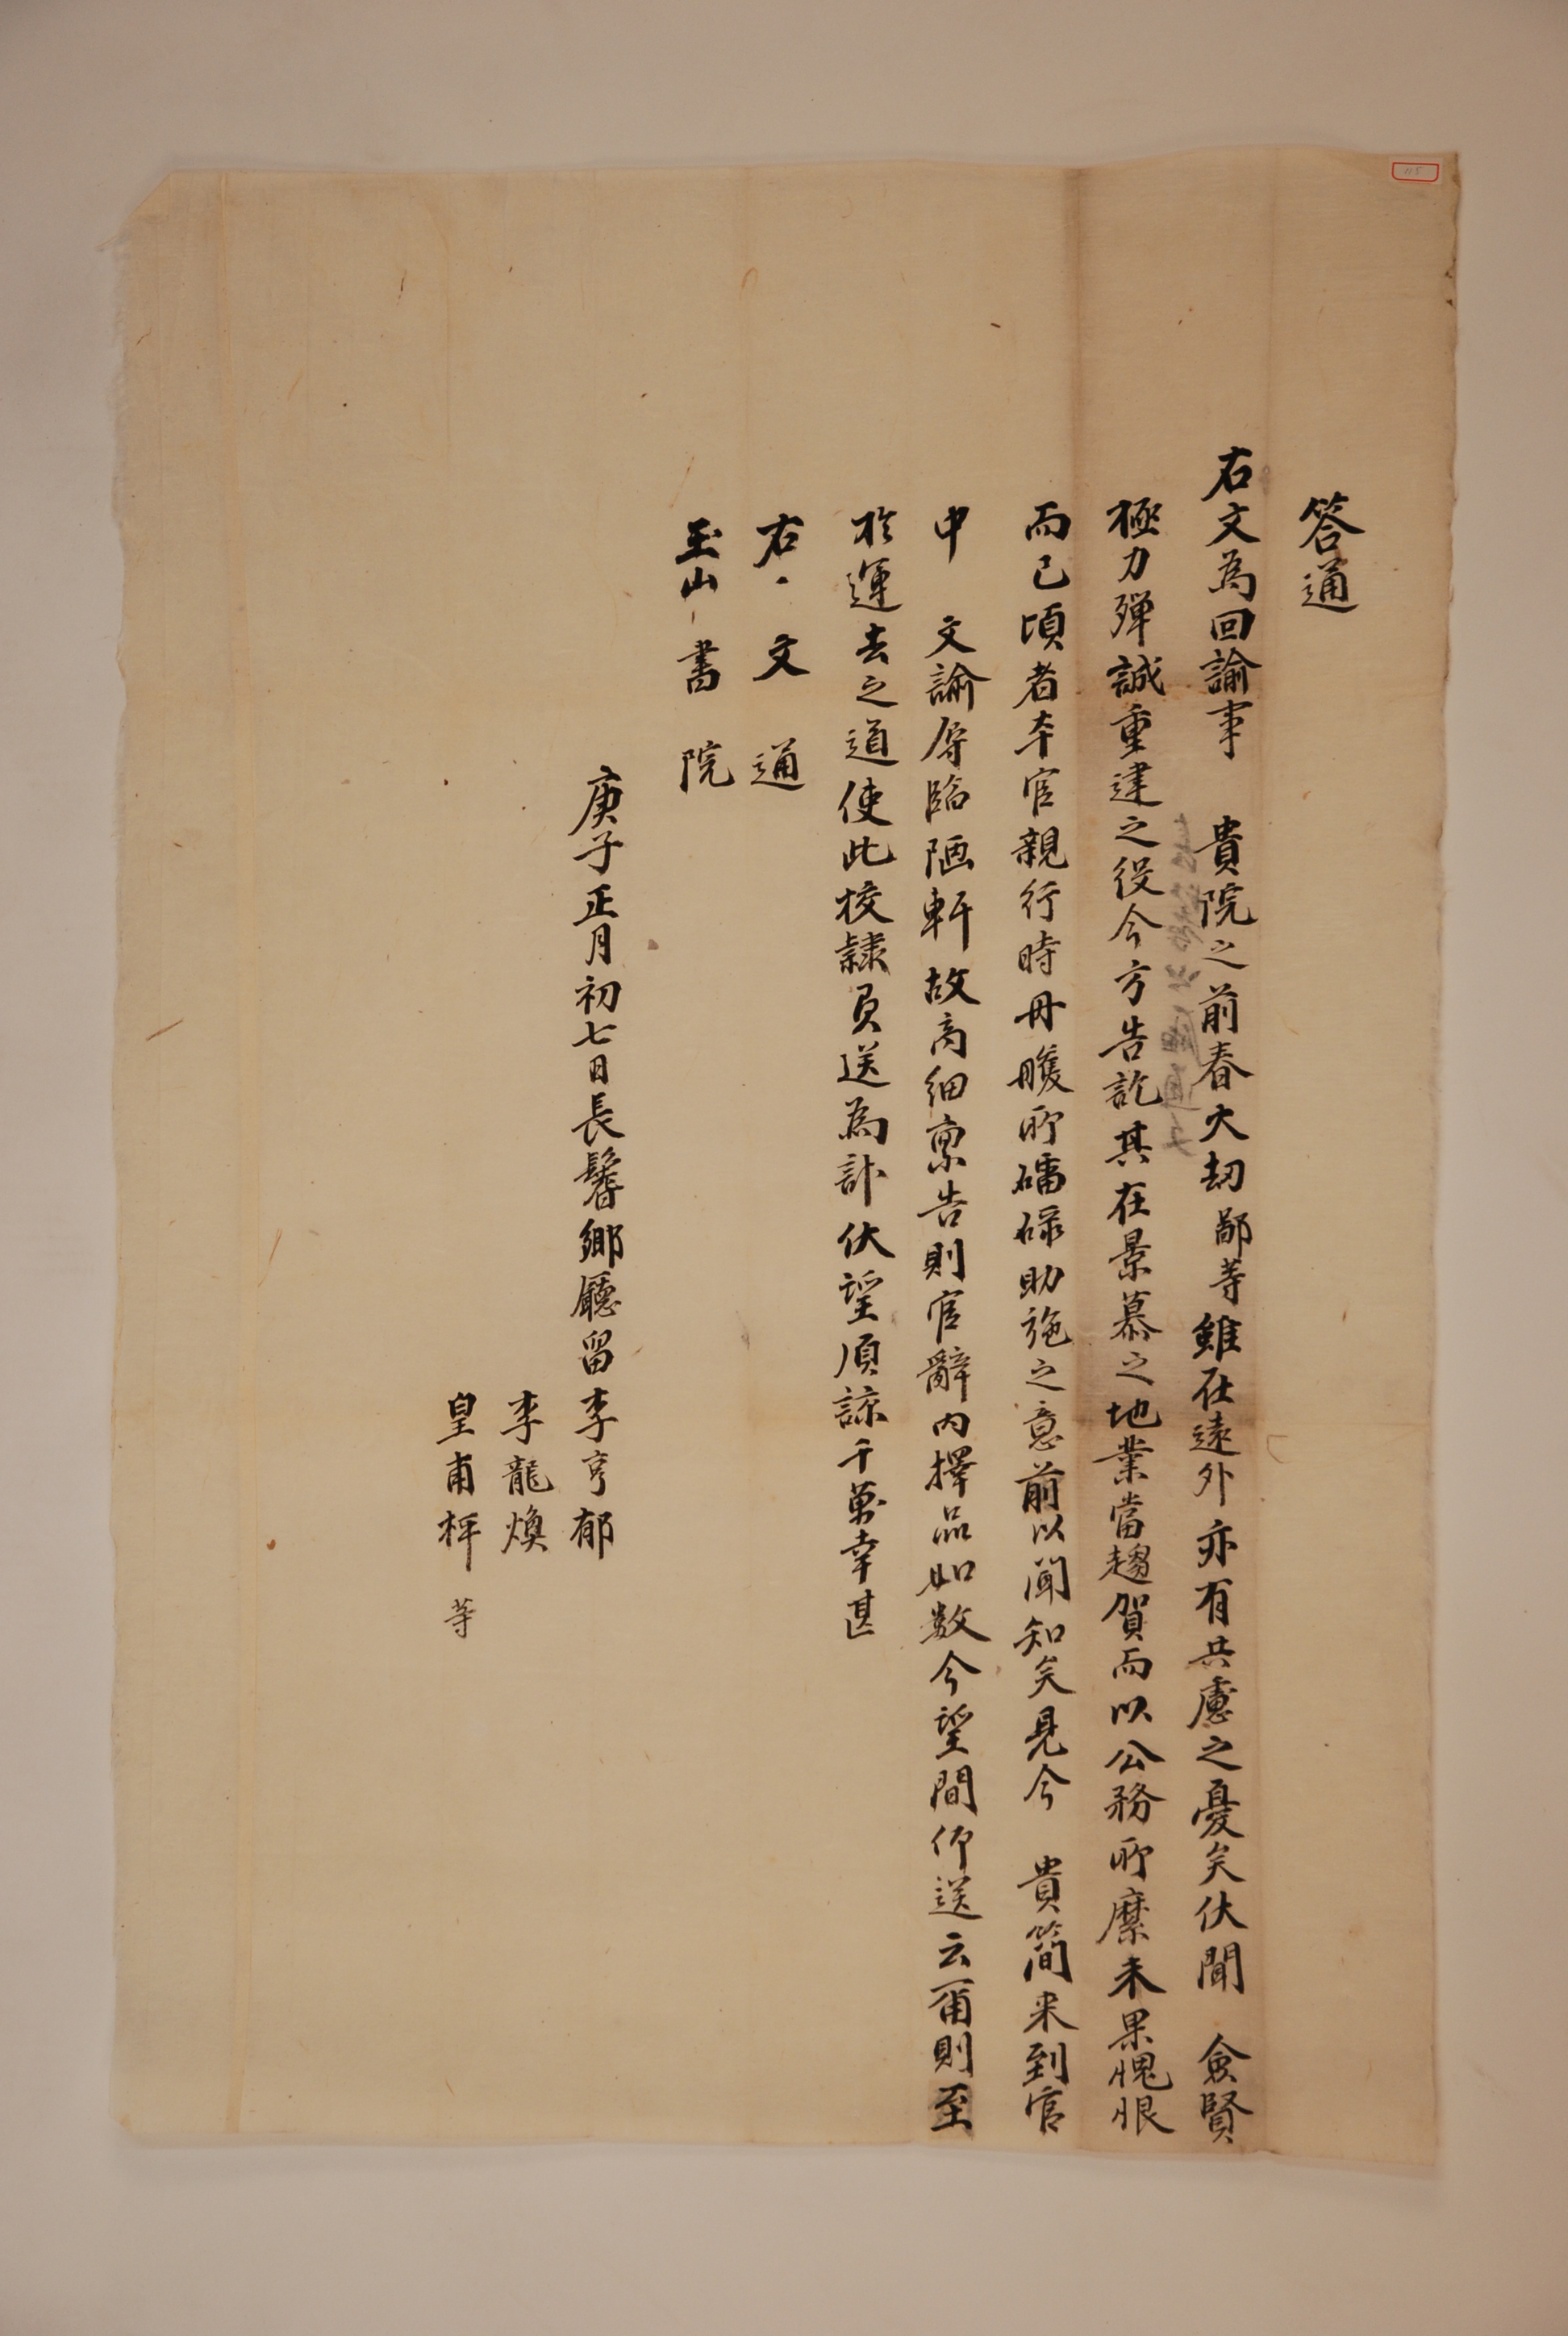 答通
右文為回諭事 貴院之前春大刧鄙等雖在遠外亦有共慮之憂矣伏聞 僉賢
極力殫誠重建之役今方告訖其在景慕之地業當趨賀而以公務所縻未果愧恨
而已頃者本官親行時丹雘所磻碌助施之意前以聞知矣見今 貴簡来到官
中 文諭辱臨陋軒故商細稟告則官辭內擇品如数今望間仰送云爾則至
於運去之道使此校隷負送為計伏望順諒千萬幸甚
右 文 通
玉山書院
庚子正月初七日長鬐鄉廳留李亨郁
李龍煥
皇甫枰 等
115